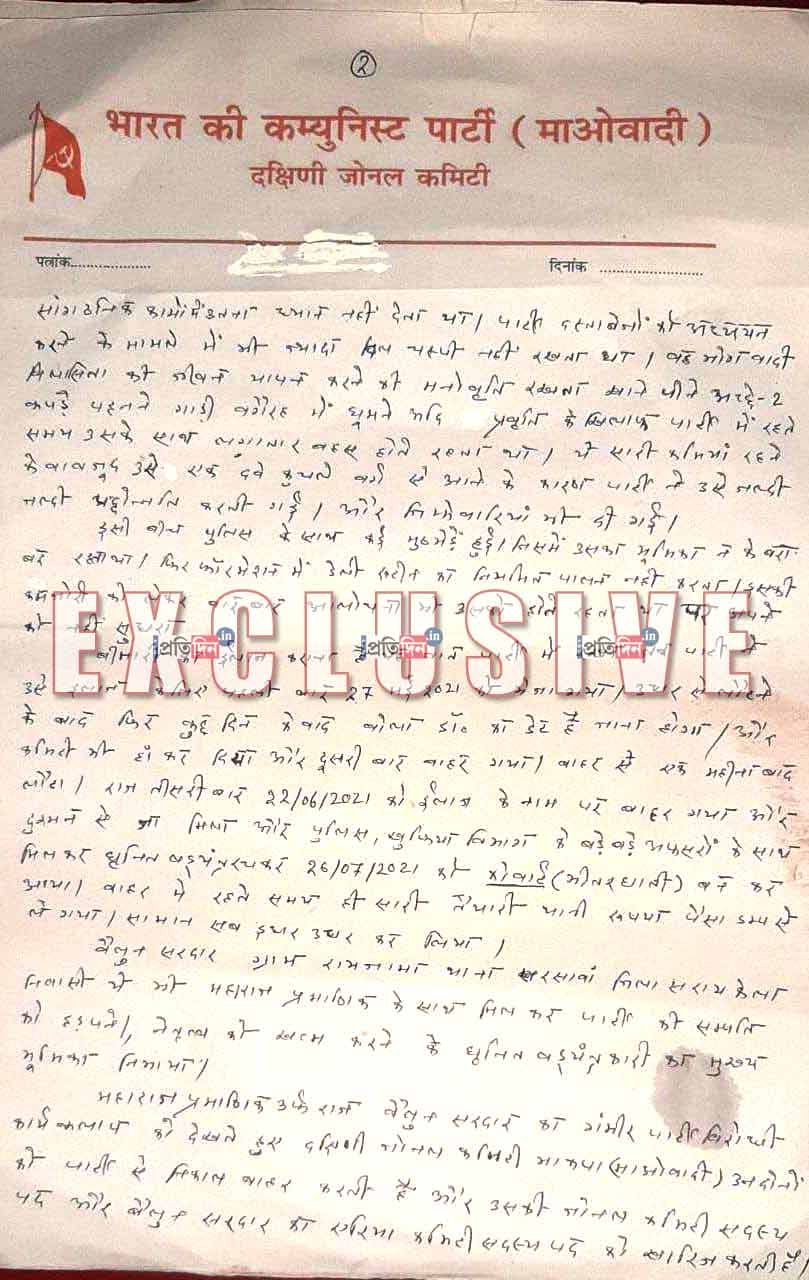 ②
भारत की कम्युनिस्ट पार्टी ( माओवादी )
दक्षिणी जोनल कमिटी
पत्रांक.................... दिनांक ........................
सांगठनिक कामों में उतना ध्यान नहीं देता था। पार्टी दस्तावेजों को अध्ययन
करने के मामले में भी ज्यादा दिल चस्पी नहीं रखता था। वह भोगवादी
विलासिता की जीवन यापन करने की मनोवृति रखता खाने पीने अच्छे-2
कपड़े पहनने गाड़ी वगैरह में घूमने आदि प्रवृति के खिलाफ पार्टी में रहते
समय उसके साथ लगातार बहस होते रहता था। ये सारी कमियां रहने
के बावजूद उसे एक दबे कुचले वर्ग से आने के कारण पार्टी ने उसे जल्दी
जल्दी पद्दोन्नति करती गई। और जिम्मेवारियां भी दी गई।
इसी बीच पुलिस के साथ कई मुठभेड़ें हुई। जिसमें उसका भूमिका न के बरा-
बर रहा था। फिर फॉरमेशन में डेली रूटीन का नियमित पालन नहीं करता। इसकी
कमजोरी को लेकर बार बार आलोचना भी उसको होते रहता था पर अपने
को नहीं सुधरा
EXCLUSIVE
प्रतिदिन.in प्रतिदिन.in प्रतिदिन.in
बीमारी का ईलाज कराना है पार्टी में पार्टी ने
उसे ईलाज के लिए पहली बार 27 मई 2021 को भेजा गया। उधर से लौटने
के बाद फिर कुछ दिन के बाद बोला डॉ० का डेट है जाना होगा। और
कमिटी भी हाँ कर दिया और दूसरी बार बाहर गया। बाहर से एक महीना बाद
लौटा। राज तीसरी बार 22/06/2021 को ईलाज के नाम पर बाहर गया और
दुश्मन से जा मिला और पुलिस, खुफिया विभाग के बड़े बड़े अफसरों के साथ
मिलकर घृनित षड्यंत्र रचकर 26/07/2021 को कोवार्ट (भीतरघाती) बन कर
आया। बाहर में रहते समय ही सारी तैयारी यानी रूपया पैसा डम्प से
ले गया। सामान सब इधर उधर कर लिया।
बैलुन सरदार ग्राम रामजामा थाना खरसावां जिला सरायकेला
निवासी ये भी महाराज प्रमाणिक के साथ मिल कर पार्टी की सम्पति
को हड़पने, नेतृत्व को खत्म करने के घृनित षड्यंत्रकारी का मुख्य
भूमिका निभाया।
महाराज प्रमाणिक उर्फ राज बैलुन सरदार का गंभीर पार्टी विरोधी
कार्यकलाप को देखते हुए दक्षिणी जोनल कमिटी भाकपा (माओवादी) उन दोनों
को पार्टी से निकाल बाहर करती है और उसकी जोनल कमिटी सदस्य
पद और बैलुन सरदार का एरिया कमिटी सदस्य पद को खारिज करती है।